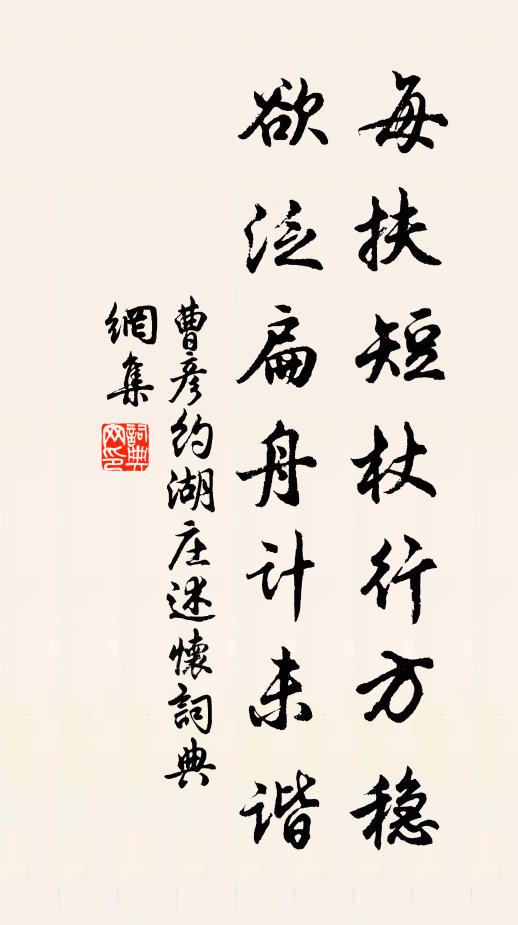 每扶短杖行方稳
欲泛扁舟计未谐
曹彦约湖庄述懷詞典
網集
詞典
网印